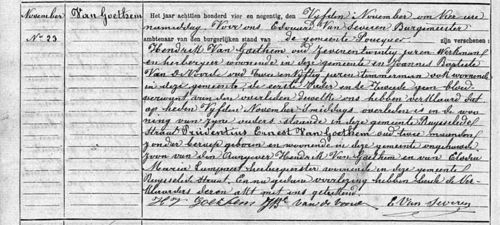 November
Van Goethem
No 23.
Het jaar achtien honderd vier en negentig, den Vijfden November om vier ure
namiddag Voor ons Edouard Van Severen Burgmeester
ambtenaar van den burgerlijken stand van de gemeente Poucques zijn verschenen:
Hendrik Van Goethem oud zevenentwintig jaren Werkman
en herbergier wonende in deze gemeente en Joannes Baptiste
Van De Voorde oud tweenvijftig jaren timmerman ook wonende
in deze gemeente, de eerste Vader en de tweede geen bloed
verwant van den overleden dewelke ons hebben verklaard dat
op heden Vijfden November Smiddags overleden is in de wo
ning van zijne ouders staande in deze gemeente Ruysselede
Straat Prudentius Ernest Van Goethem oud twee maanden
zonder beroep geboren en wonende in deze gemeente ongehuwde
zoon van den aangever Hendrik Van Goethem en van Elodia
Maria wonende in deze gemeente
Ruysselede Straat. En na gedane voorlezing hebben beide de Ver-
klaarders dezen akt met ons geteekend.
H V Goethem J Bte van de voorde E. Van Severen